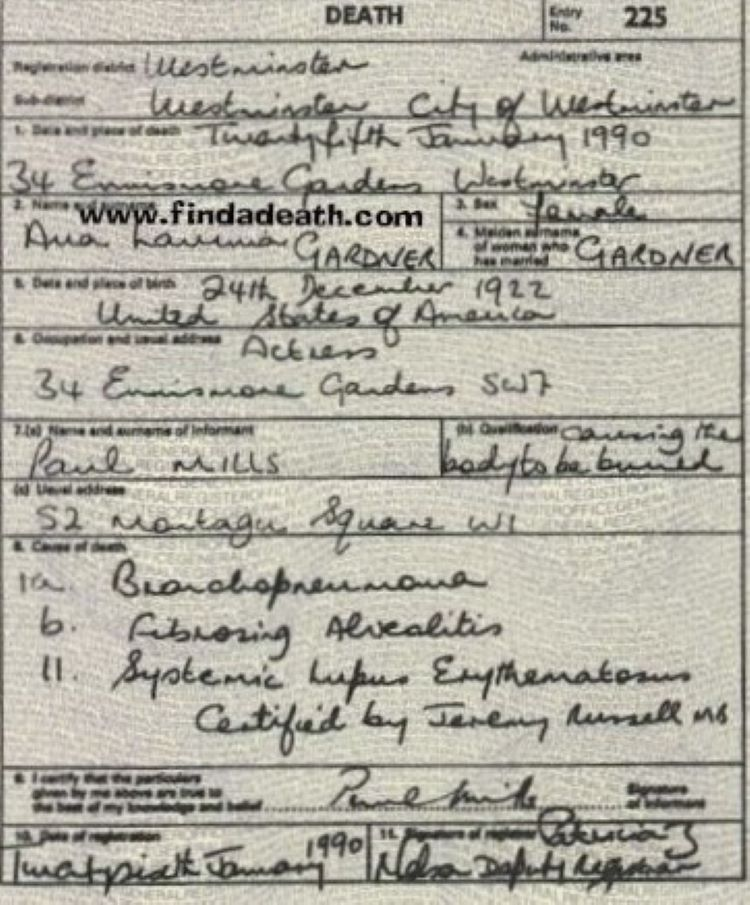 DEATH
Entry No. 225
Registration district Westminster
Administrative area
Sub-district Westminster City of Westminster
1. Date and place of death Twentyfifth January 1990
34 Ennismore Gardens Westminster
2. Name and surname
www.findadeath.com
Ava Lavinia GARDNER
3. Sex Female
4. Maiden surname of woman who has married GARDNER
5. Date and place of birth 24th December 1922
United States of America
6. Occupation and usual address Actress
34 Ennismore Gardens SW7
7.(a) Name and surname of informant
Paul MILLS
(b) Qualification causing the
body to be buried
(c) Usual address
52 Montagu Square W1
8. Cause of death
1a. Bronchopneumonia
b. Fibrosing Alveolitis
11. Systemic Lupus Erythematosus
Certified by Jeremy Russell MB
9. I certify that the particulars
given by me above are true to
the best of my knowledge and belief
Paul Mills
Signature
of informant
10. Date of registration
Twentysixth January 1990
11. Signature of registrar Patricia
Deputy Registrar